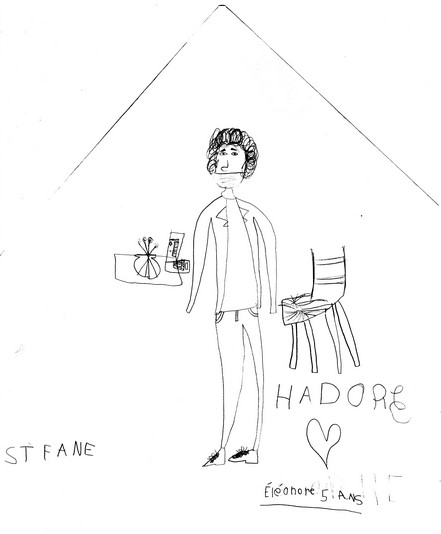 HADORE
ST FANE
Éléonore 5 ANS